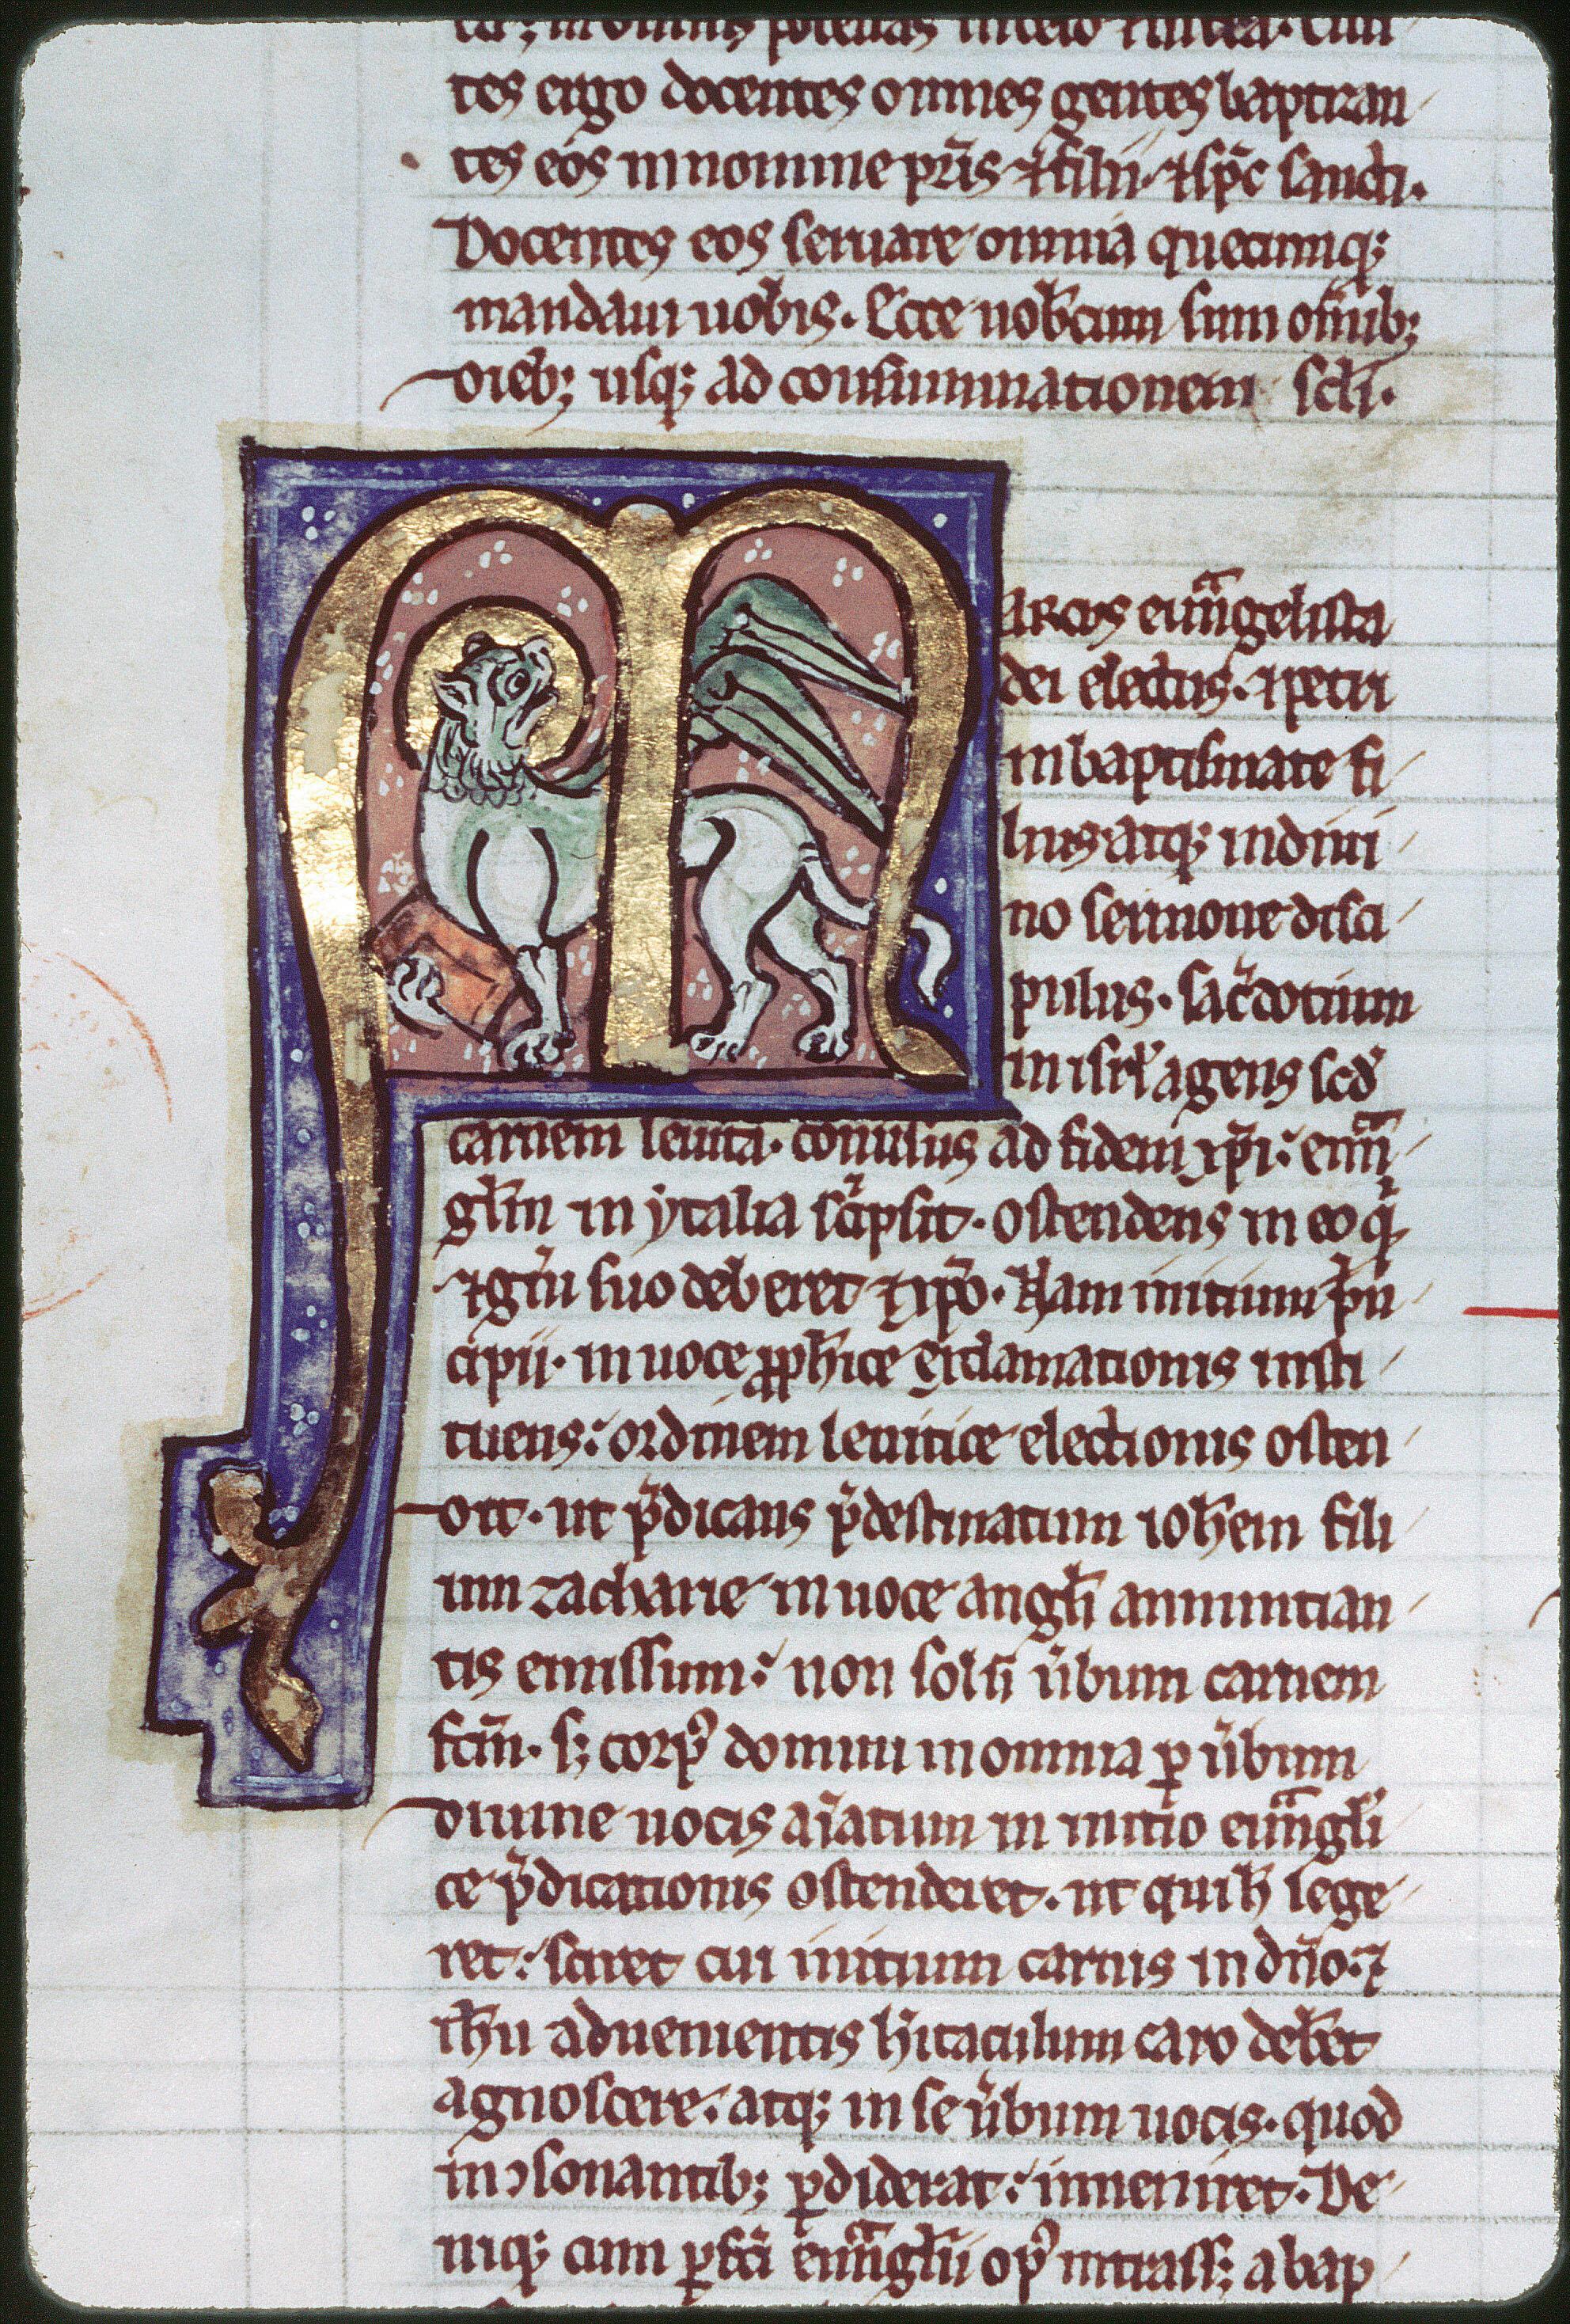 tes ergo docentes omnes gentes baptizan
tes eos in nomine pr̄is ⁊ filii· ⁊ sp̄c sancti·
Docentes eos seruare omnia quecumq;
mandaui uobis· Ecce uob̄cum sum om̄ib;
dieb; usq; ad consummationem scl̄i·
Marcus euu̅ngelista
dei electus· ⁊ petri
in baptismate fi
lius atq; in diui
no sermone disci
pulus· sac̓dotium
in isrl̄ agens scd̓
carnem leuita· conuersus ad fidem xp̄i: euu̅n
gl̄m in ytalia sc̓psit· ostendens in eo q̓
⁊ gn̄i suo deberet ⁊ xp̄o· Nam initium p̓n
cipii· in uoce ꝓph̄ice exclamationis insti
tuens: ordinem leuitice electionis osten
dit· ut p̓dicans p̓destinatum ioh̄em fili
um zacharie in uoce angl̄i annuntian
tis emissum: non solū u̓bum carnem
fc̄m· s; corpꝰ domini in omnia ꝑ u̓bum
diuine uocis aīatum in initio euu̅ngl̄i
ce p̓dicationis ostenderet· ut qui h̄ lege
ret: sciret cui initium carnis in dn̄o: ⁊
ih̄u aduenientis h̄itaculum caro deb̄et
agnoscere: atq; in se u̓bum uocis· quod
in ↄsonantib; ꝑdiderat: inueniret· De
niq; cum ꝑfc̄i euu̅ngl̄ii opꝰ intrass; a bap